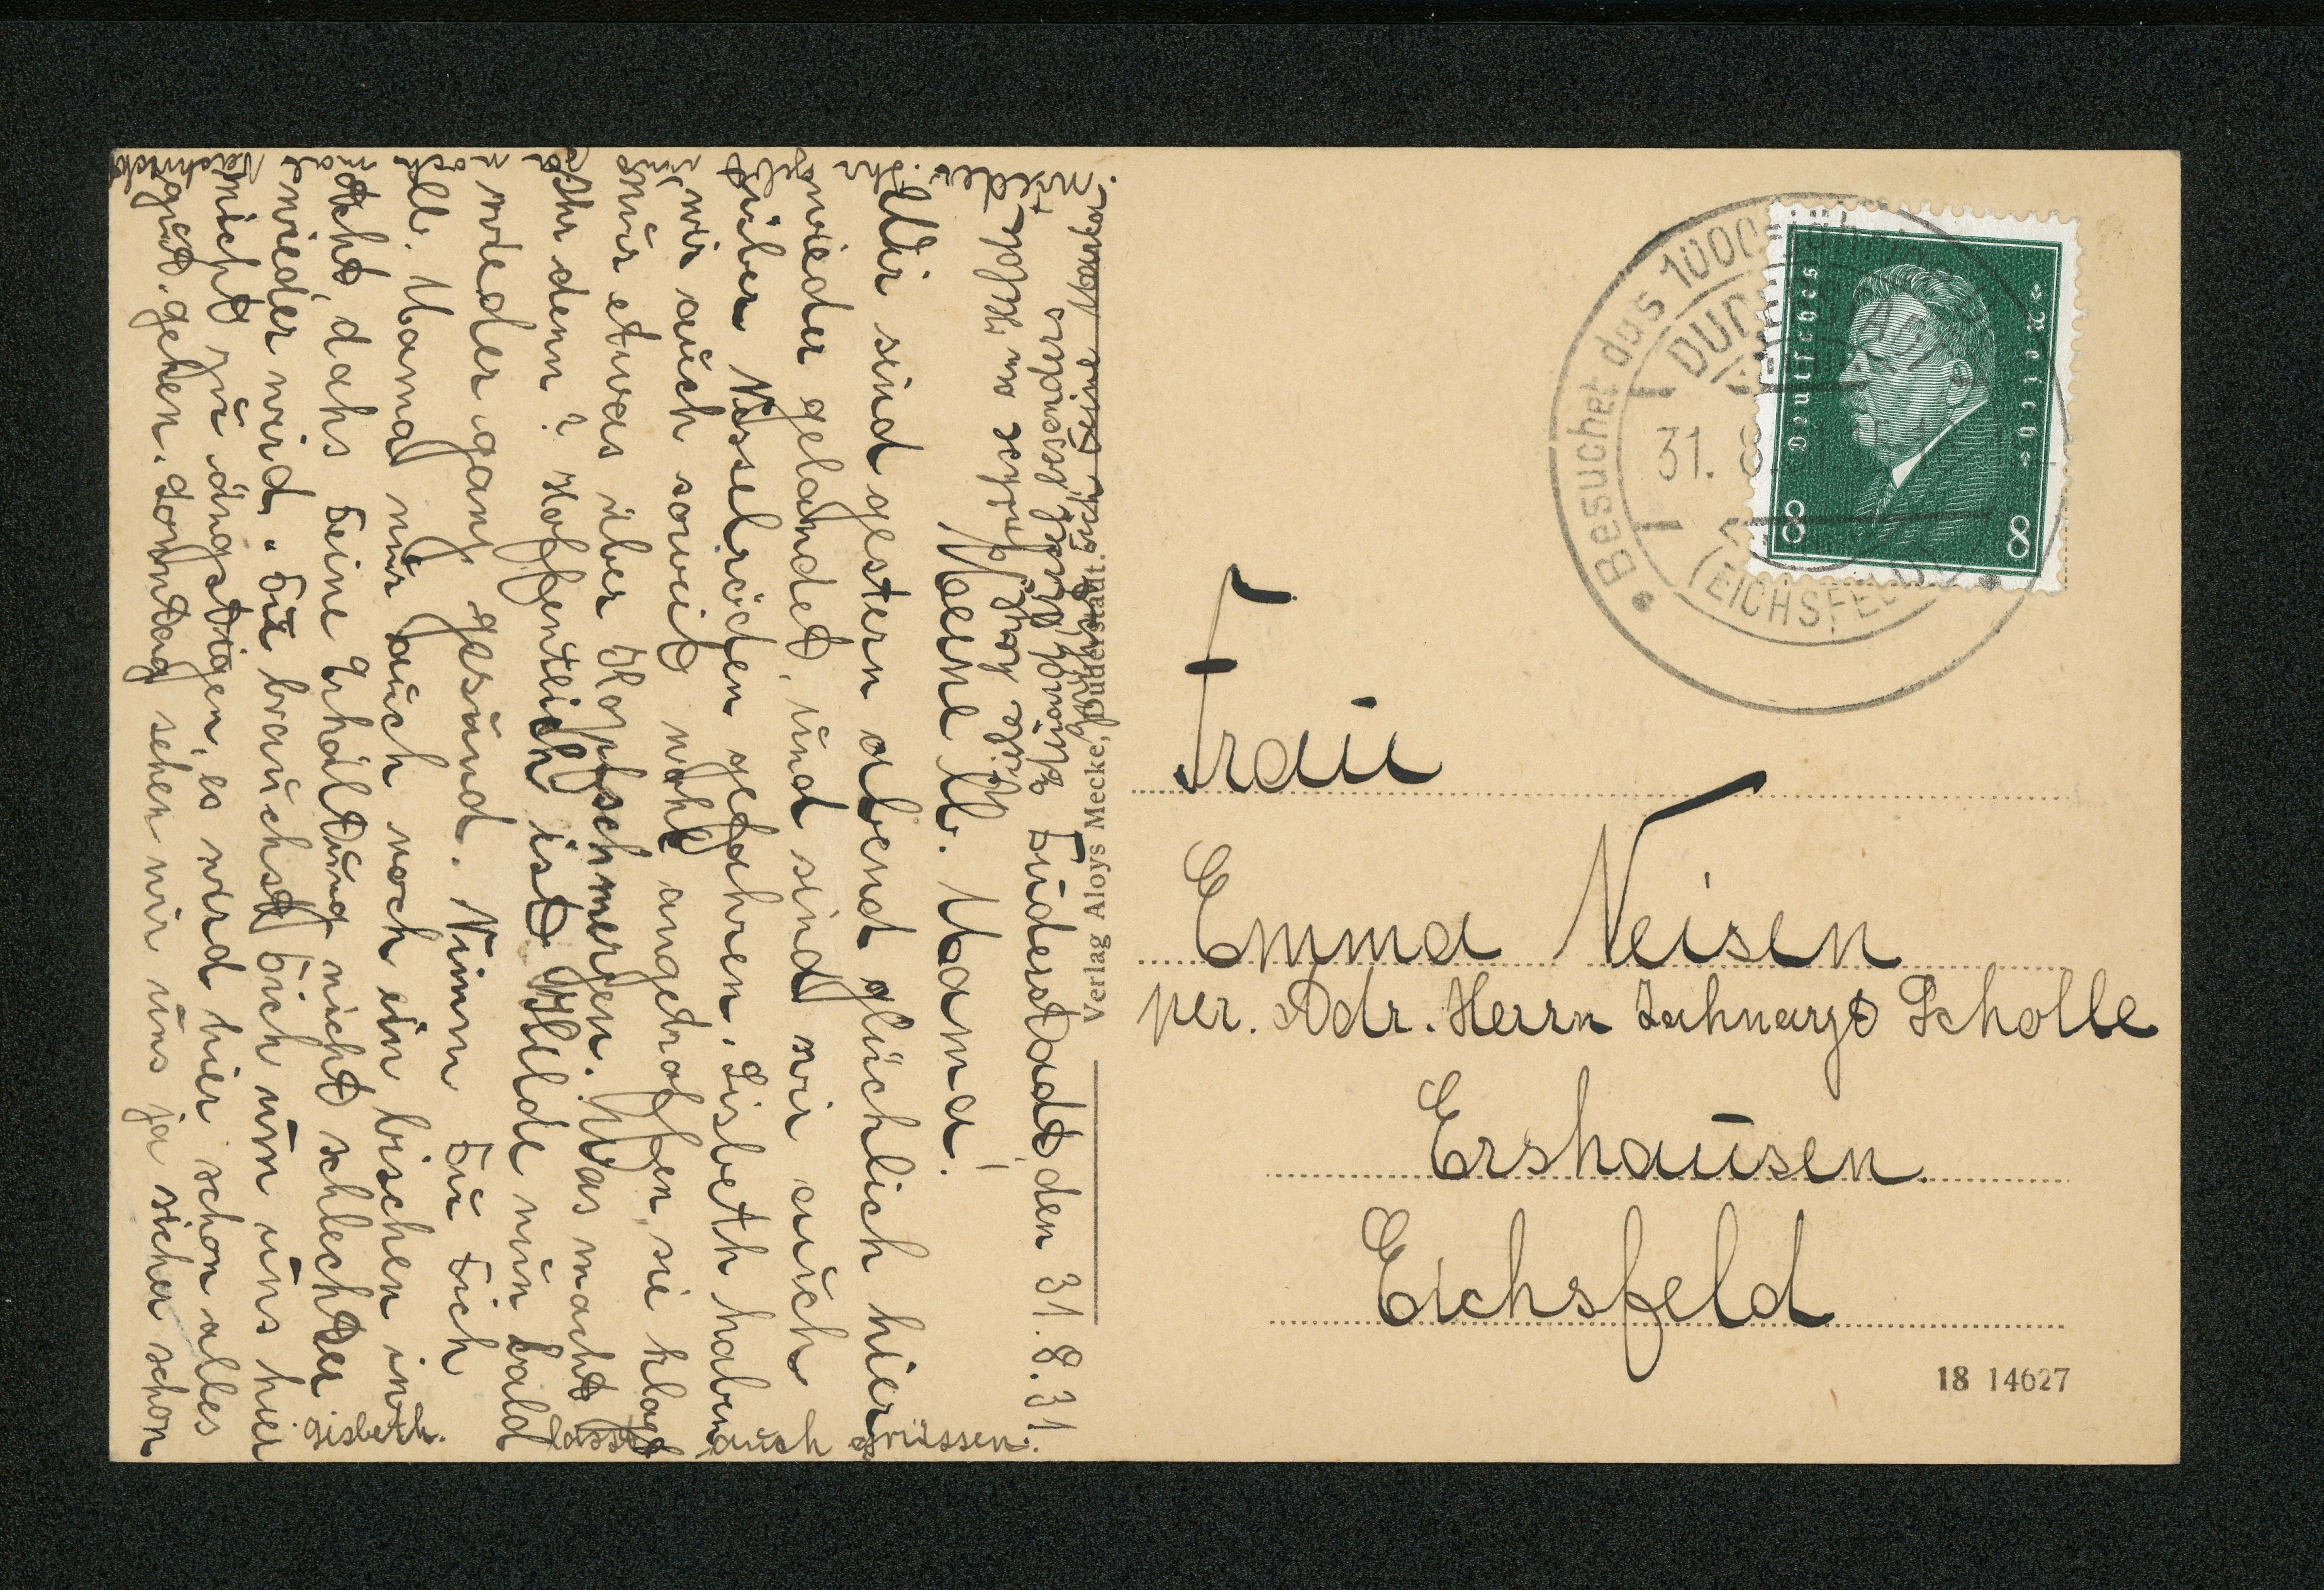 Duderstadt, den 31.8.31
Meine lb. Mama!
Wir sind gestern abend glücklich hier
wieder gelandet, und sind wir auch
über Nesselröden gefahren, Lisbeth haben
wir auch soweit wohl angetroffen, sie klagt
nur etwas über Kopfschmerzen. Was macht
Ihr denn? Hoffentlich ist Hilde nun bald
wieder ganz gesund. Nimm Du Dich
lb. Mama nur auch noch ein bischen in
Acht, dahs Deine Erhältung nicht schlechter
wieder wird. Du brauchst Dich um uns hier
nicht zu ängstigen, es wird hier schon alles
gut gehen. Sonntag sehen wir uns ja sicher schon
wieder. Ihr gebt uns ja noch mal Nachricht
Viele herzl. Grüsse an Hilde +
besonders
Dich Deine Marka
Lisbeth. lasst auch grüssen.
Verlag Aloys Mecke, Duderstadt.
Besuchet das 1000
DUD
31. 8
(EICHSFELD)
Deutsches Reich
8 8
Frau
Emma Neisen
per. Adr. Herrn Zahnarzt Scholle
Ershausen.
Eichsfeld
18 14627